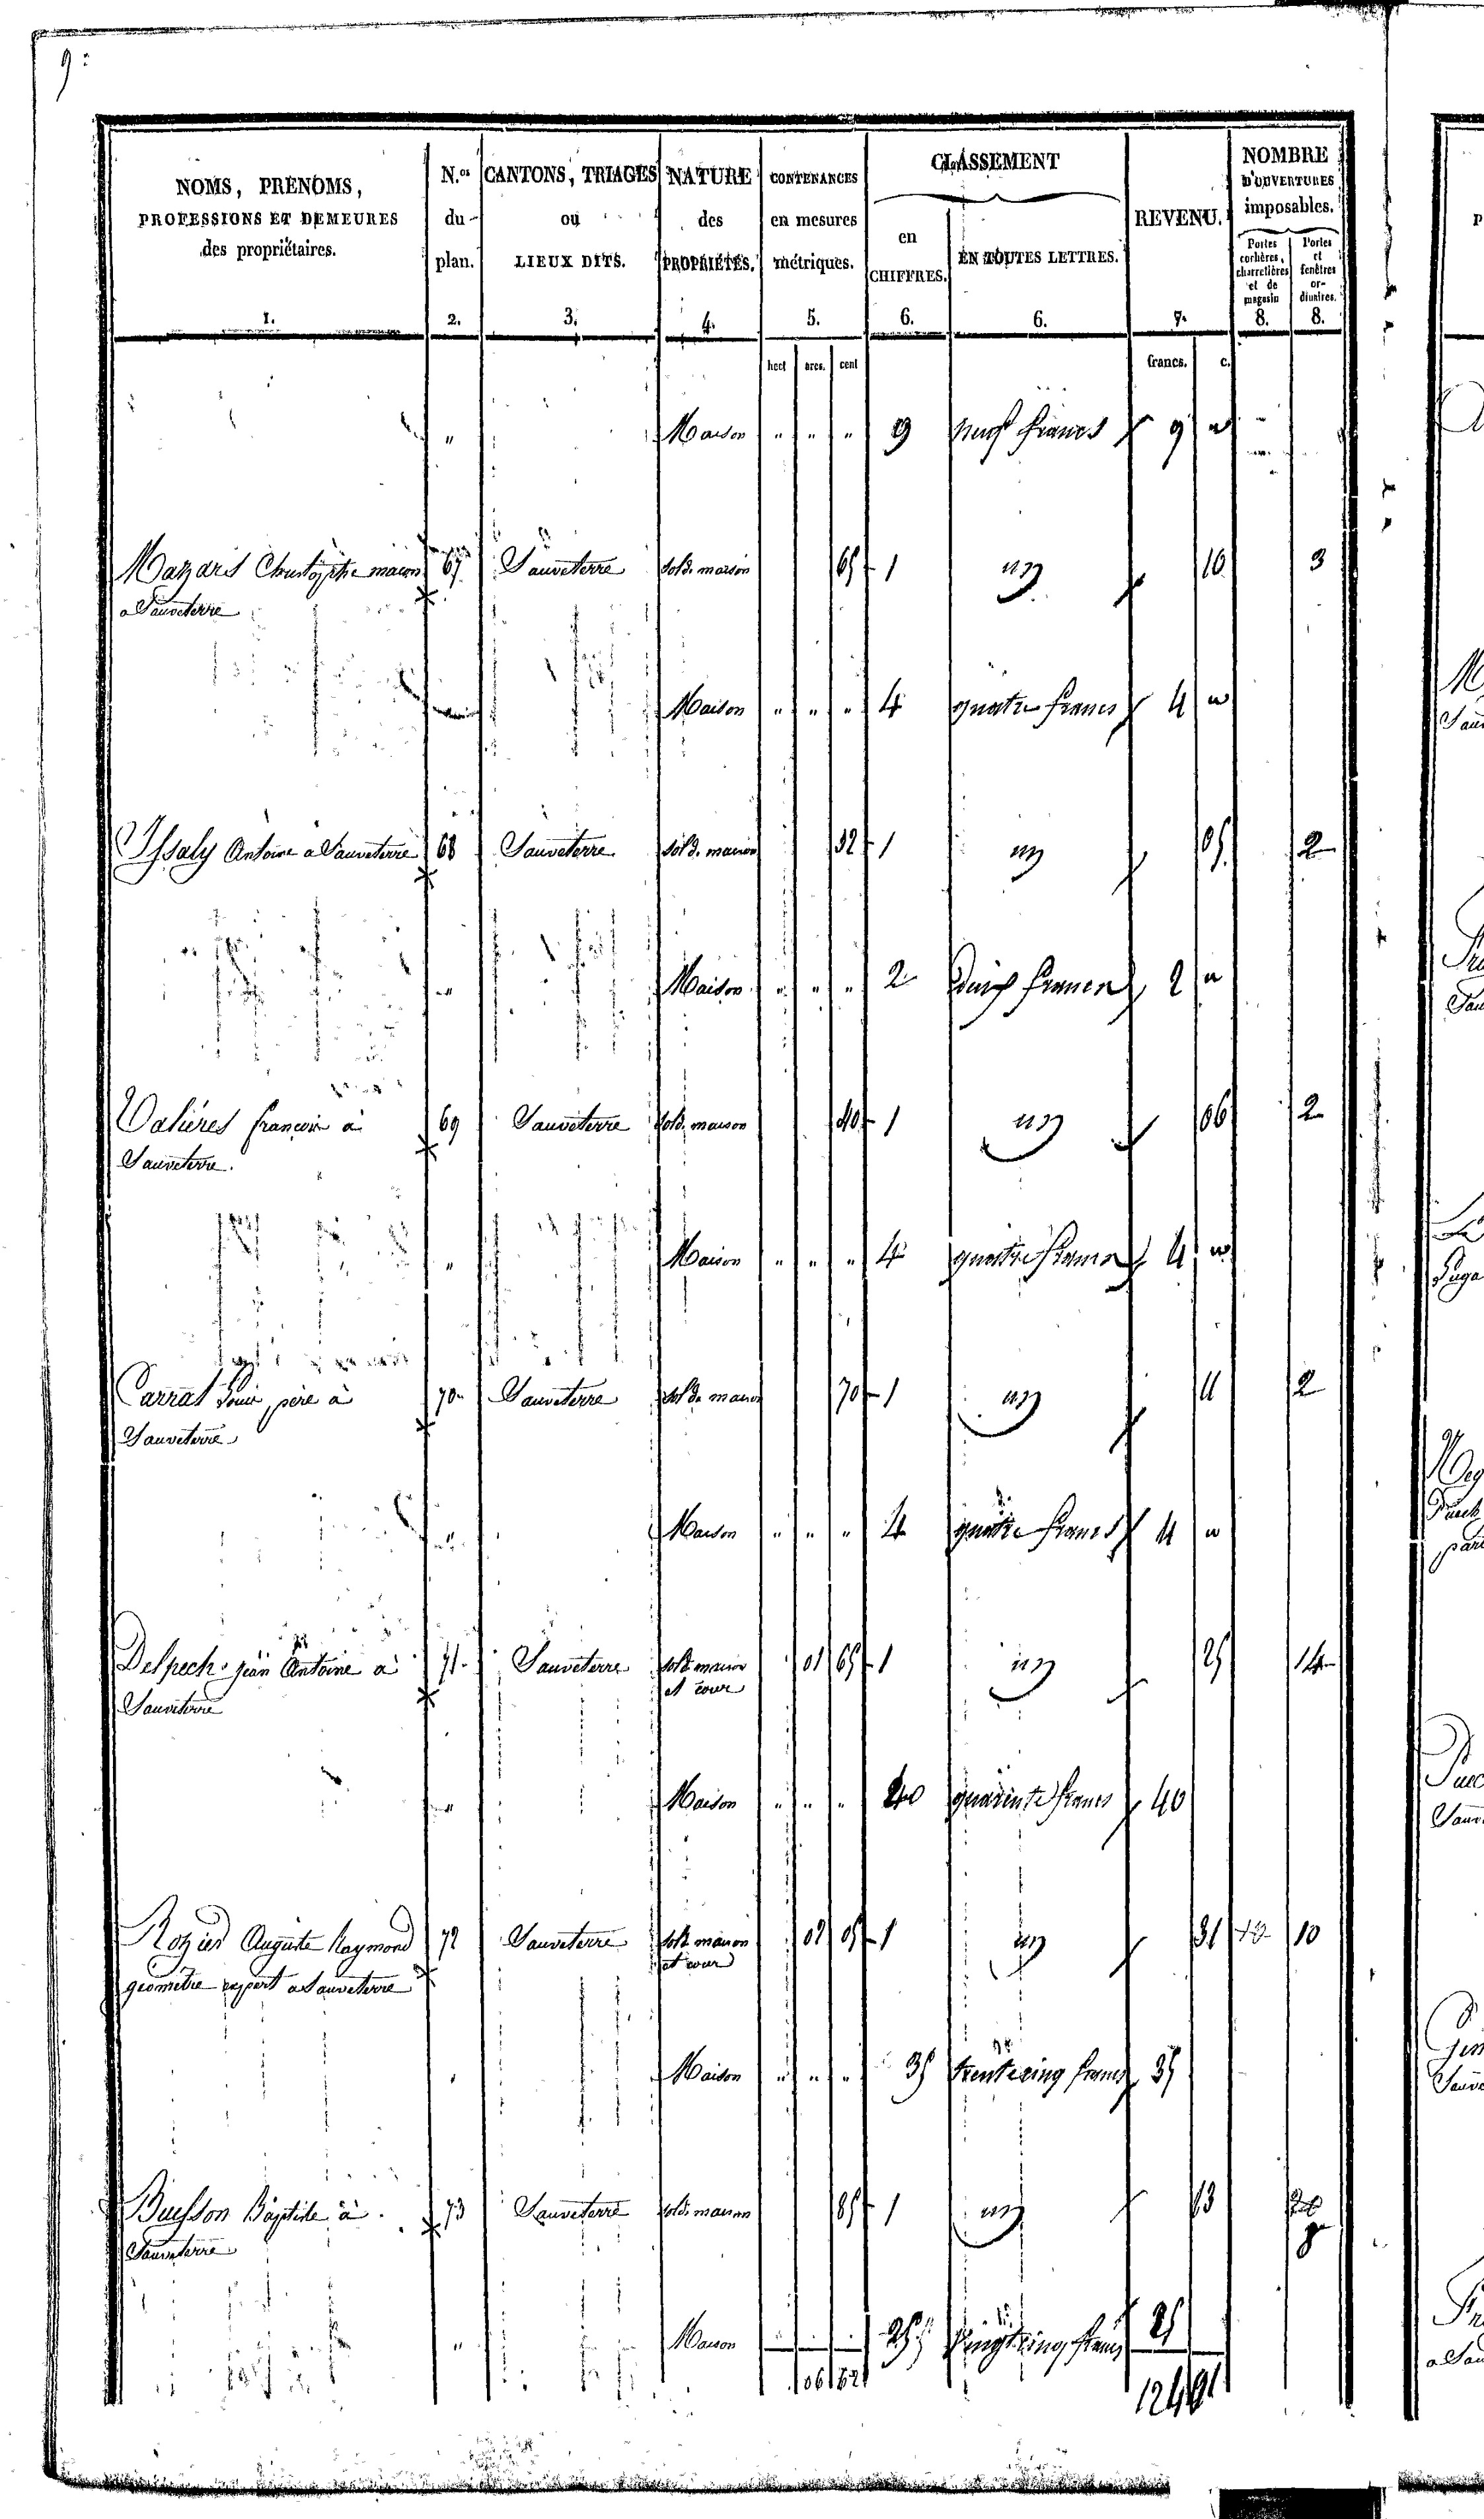 9
NOMS, PRÉNOMS,
PROFESSIONS ET DEMEURES
des propriétaires.
1.
N.os
du
plan.
2.
CANTONS, TRIAGES
ou
LIEUX DITS.
3.
NATURE
des
PROPRIÉTÉS.
4.
CONTENANCES
en mesures
métriques.
5.
CLASSEMENT
en
CHIFFRES.
6.
EN TOUTES LETTRES.
6.
REVENU.
7.
NOMBRE
D'OUVERTURES
imposables.
Portes
cochères,
charretières
et de
magasin
8.
Portes
et
fenêtres
or-
dinaires.
8.
hect ares. cent francs. c.
" Maison " " " 9 neuf francs 9 "
Mazars Christophe maçon 67 Sauveterre sol de maison 65 1 un 10 3
a Sauveterre
Maison " " " 4 quatre francs 4 "
Issaly Antoine a Sauveterre 68 Sauveterre sol de maison 32 1 un 05 2
" Maison " " " 2 deux francs 2 "
Valières françois à 69 Sauveterre sol de maison 40 1 un 06 2
Sauveterre.
" Maison " " " 4 quatre francs 4 "
Carrat Louis, père à 70 Sauveterre sol de maison 70 1 un 11 2
Sauveterre
" Maison " " " 4 quatre francs 4 "
Delpech jean Antoine à 71 Sauveterre sol de maison 01 65 1 un 25 14
Sauveterre et cour
" Maison " " " 40 quarante francs 40
Rozier Auguste Raymond 72 Sauveterre sol de maison 02 05 1 un 31 10
géomètre expert a Sauveterre et cour
" Maison " " " 35 trente cinq francs 35
Buisson Baptiste à 73 Sauveterre sol de maison 85 1 un 13
Sauveterre
" Maison 25 vingt cinq francs 25
06 62
124 01